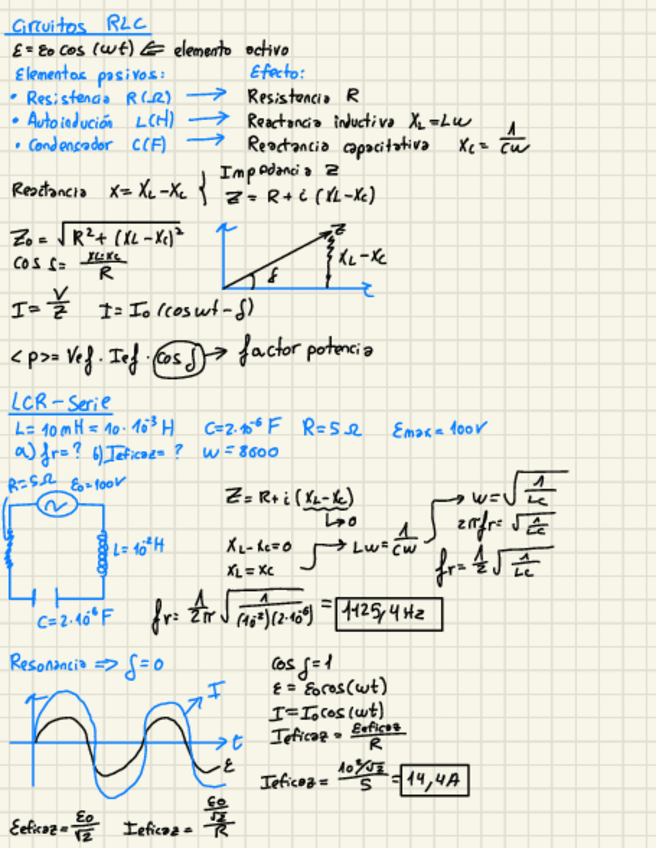 Circuitos RLC
ε = ε₀ cos (ωt) ⇐ elemento activo
Elementos pasivos: Efecto:
• Resistencia R(Ω) → Resistencia R
• Autoindución L(H) → Reactancia inductiva X_L = Lω
• Condensador C(F) → Reactancia capacitativa X_C = 1/Cω
Reactancia X = X_L - X_C { Impedancia Z
Z = R + i (X_L - X_C)
Z₀ = √(R² + (X_L - X_C)²)
cos δ = (X_L - X_C)/R
Z
X_L - X_C
δ
I = V/Z I = I₀ (cos ωt - δ)
<p> = Vef · Ief · cos δ → factor potencia
LCR - Serie
L = 10 mH = 10 · 10⁻³ H C = 2·10⁻⁶ F R = 5 Ω εmax = 100V
a) fr = ? b) Ieficaz = ? ω = 8000
R = 5 Ω ε₀ = 100V
L = 10⁻² H
C = 2·10⁻⁶ F
Z = R + i (X_L - X_C)
↳ 0
X_L - X_C = 0
X_L = X_C → Lω = 1/Cω → ω = √(1/LC)
2πfr = √(1/LC)
fr = 1/2 √(1/LC)
fr = 1/2π √(1/(10⁻²)(2·10⁻⁶)) = 1125,4 Hz
Resonancia => δ = 0
I
t
ε
cos δ = 1
ε = ε₀ cos(ωt)
I = I₀ cos(ωt)
Ieficaz = εeficaz/R
Ieficaz = (10²/√2)/5 = 14,4 A
εeficaz = ε₀/√2 Ieficaz = (ε₀/√2)/R